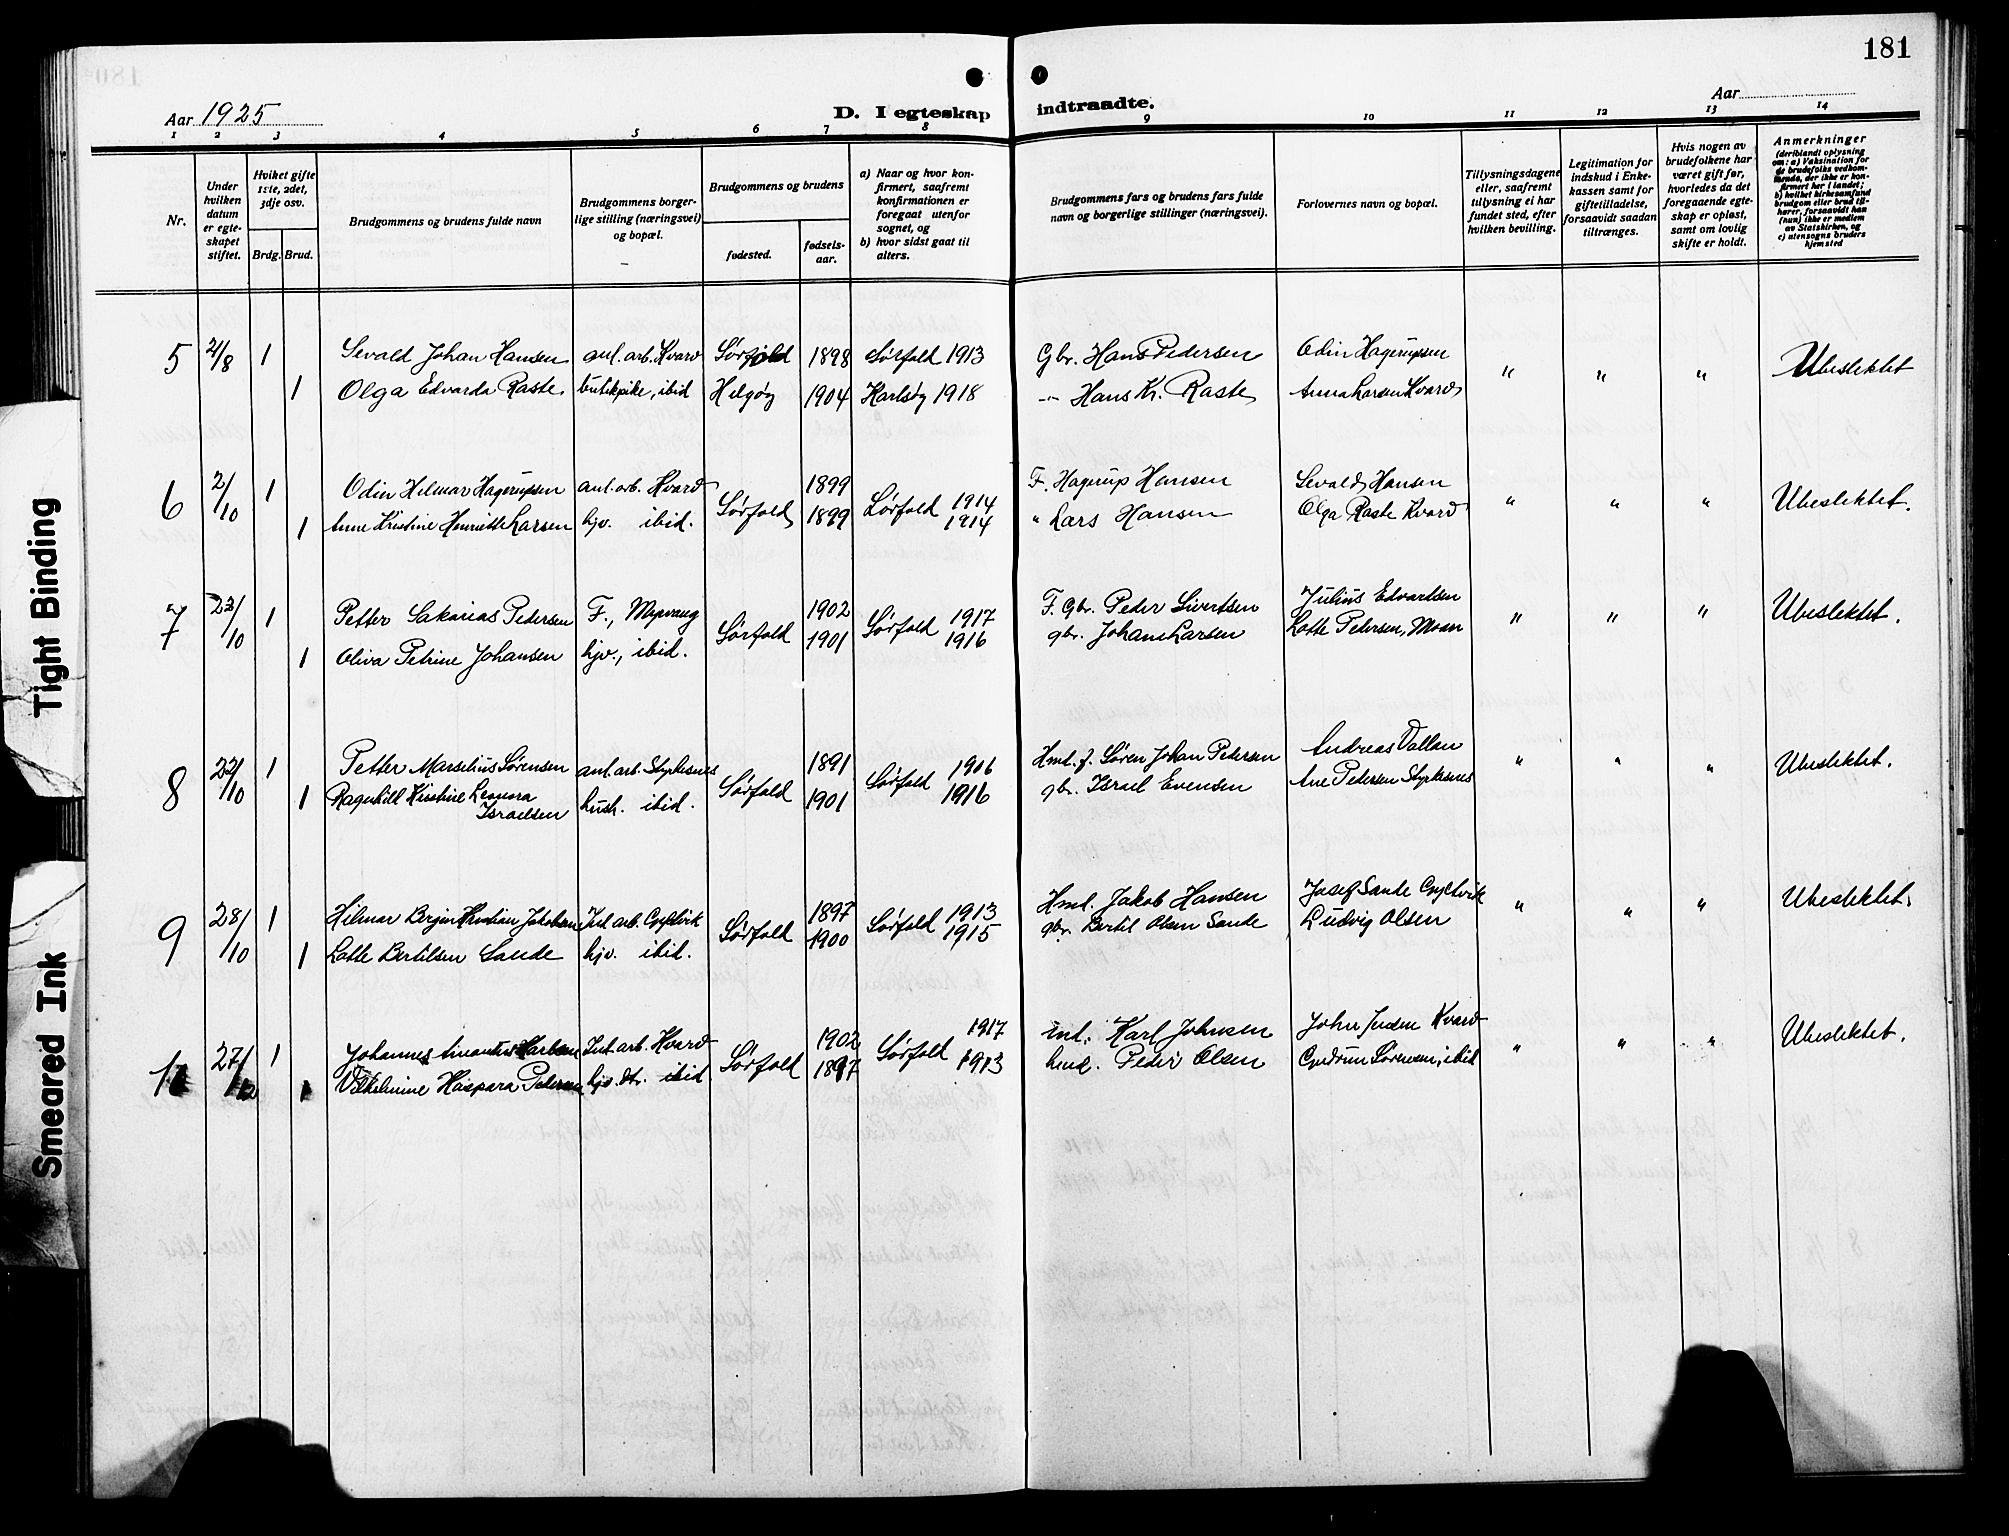 181
Aar 1925
D. I egteskap indtraadte.
Aar
1 2 3 4 5 6 7 8 9 10 11 12 13 14
Nr.
Under hvilken datum er egteskapet stiftet.
Hvilket gifte 1ste, 2det, 3dje osv.
Brdg. Brud.
Brudgommens og brudens fulde navn
Brudgommens borgerlige stilling (næringsvei) og bopæl.
Brudgommens og brudens
fødested.
fødselsaar.
a) Naar og hvor konfirmert, saafremt konfirmationen er foregaat utenfor sognet, og
b) hvor sidst gaat til alters.
Brudgommens fars og brudens fars fulde navn og borgerlige stillinger (næringsvei).
Forlovernes navn og bopæl.
Tillysningsdagene eller, saafremt tillysning ei har fundet sted, efter hvilken bevilling.
Legitimation for indskud i Enkekassen samt for giftetilladelse, forsaavidt saadan tiltrænges.
Hvis nogen av brudefolkene har været gift før, hvorledes da det foregaaende egteskap er opløst, samt om lovlig skifte er holdt.
Anmerkninger
(deriblandt oplysning om: a) Vaksination for de brudefolks vedkommende, der ikke er konfirmert her i landet;
b) hvilket kirkesamfund brudgom eller brud tilhører, forsaavidt han (hun) ikke er medlem av Statskirken, og
c) utensogns bruders hjemsted
5 2/8 1 Sevald Johan Hansen anl. arb. Kvarv Sørfold 1898 Sørfold 1913 Gbr. Hans Pedersen Odin Hagerupsen " " " Ubeslektet
1 Olga Edvarda Raste butikpike, ibid Helgøy 1904 Karlsøy 1918 -"- Hans Kr. Raste Anna Larsen Kvarv
6 2/10 1 Odin Hilmar Hagerupsen anl. arb. Kvarv Sørfold 1899 Sørfold 1914 F. Hagerup Hansen Sevald Hansen " " " Ubeslektet.
1 Anne Kristine Henriette Larsen hjv. ibid. 1899 1914 " Lars Hansen Olga Raste Kvarv
7 22/10 1 Petter Sakarias Pedersen F., Sørfold 1902 Sørfold 1917 F. Gbr. Peder Sivertsen Julius Edvartsen " " " Ubeslektet.
1 Oliva Petrine Johansen hjv., ibid. 1901 1916 gbr. Johan Larsen Lotte Petersen, Moen
8 22/10 1 Petter Marselius Sørensen anl. arb. Styrkesnes Sørfold 1891 Sørfold 1906 Hmd. f. Søren Johan Pedersen Andreas Vallan " " " Ubeslektet.
1 Ragnhild Kirstine Leonora Israelsen hush. ibid. 1901 1916 gbr. Israel Evensen Ane Petersen Styrkesnes
9 28/10 1 Hilmar Bergin Kristian Jakobsen Ind. arb. Gyltvik Sørfold 1897 Sørfold 1913 Hmd. Jakob Hansen Josef Sande Gyltvik " " " Ubeslektet.
1 Lotte Bertilsen Sande hjv. ibid. 1900 1915 gbr. Bertil Olsen Sande Ludvig Olsen
27/12 1 Johannes Ind. arb. Kvarv Sørfold 1902 Sørfold 1917 ind. Karl Johnsen John Kvarv " " " Ubeslektet.
1 Vilhelmine Kaspara Petersen hjv. dtr. ibid 1897 1913 hmd. Peder Olsen Gudrun Sørensen, ibid
Tight Binding
Smeared Ink